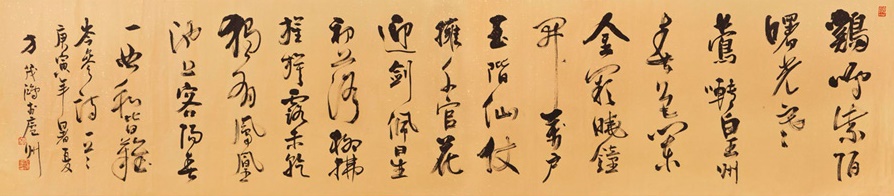 鷄鳴紫陌
曙光寒
鶯囀皇州
春色闌
金闕曉鐘
開萬户
玉階仙仗
擁千官花
迎劍佩星
初落柳拂
旌旗露未乾
獨有鳳凰
池上客陽春
一曲和皆難
岑參詩一首
庚寅年暑夏
方茂鴻書處州